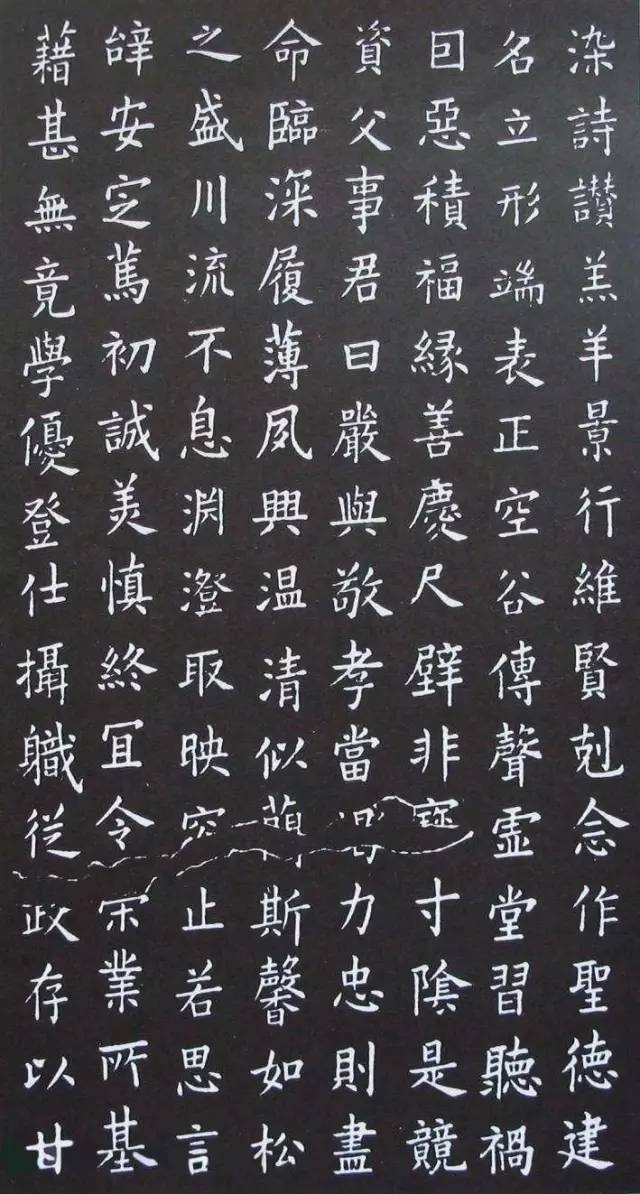 染詩讃羔羊景行維賢剋念作聖德建
名立形端表正空谷傳聲虛堂習聽禍
因惡積福緣善慶尺璧非寶寸陰是競
資父事君曰嚴與敬孝當竭力忠則盡
命臨深履薄夙興温清似蘭斯馨如松
之盛川流不息淵澄取映容止若思言
辭安定篤初誠美慎終宜令榮業所基
藉甚無竟學優登仕攝職從政存以甘